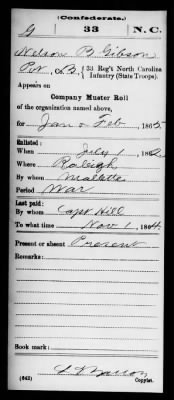 (Confederate.)
G 33 N. C.
Nelson B Gibson
Pvt, Co. B, 33 Reg't North Carolina
Infantry (State Troops).
Appears on
Company Muster Roll
of the organization named above,
for Jan & Feb, 1865.
Enlisted:
When July 1, 1862.
Where Raleigh
By whom Mallette
Period War
Last paid:
By whom Capt Hill
To what time Nov 1, 1864.
Present or absent Present
Remarks:
Book mark:
(642) Copyist.